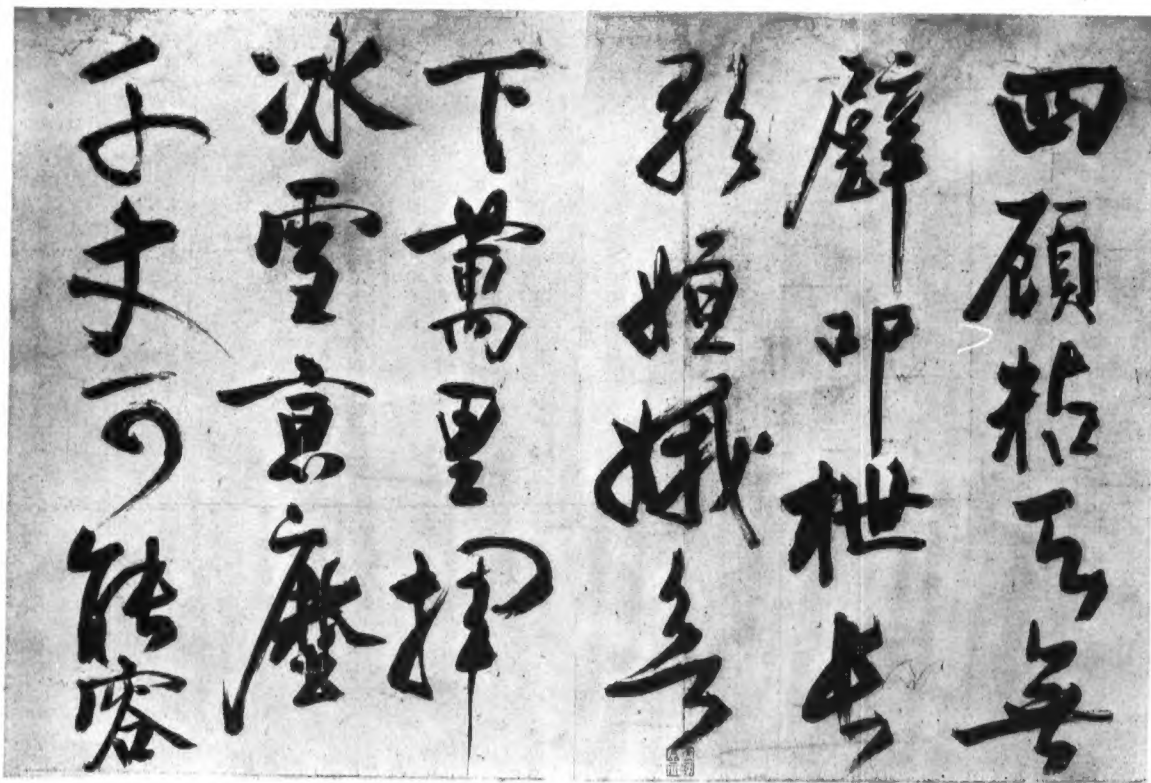 四顧粘天無
壁叩枻長
歌姮娥欲
下萬里揮
冰雪京塵
千丈可能容